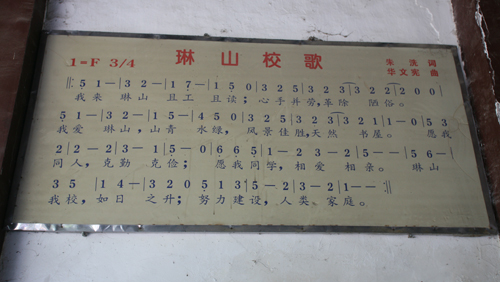 1=F 3/4 琳山校歌 朱洗 词
华文宪 曲
5 1 – | 3 2 – | 1 7 – | 1 5 0 | 3 2 5 | 3 2 3 | 3 2 3 | 3 2 2 | 2 0 0 |
我来琳山且工且读；心手并劳，革除陋俗。
5 1 – | 3 2 – | 1 5 – | 4 5 0 | 3 2 5 | 3 2 3 | 3 2 3 | 3 2 1 | 1 – 0 | 5 3
我爱琳山，山青水绿，风景佳胜，天然书屋。愿我
2 | 2 – 2 | 3 – 1 | 5 – 0 | 6 6 5 | 1 – 2 | 3 – 2 | 5 – – | 5 6 – |
同人，克勤克俭；愿我同学，相爱相亲。琳山
3 5 | 1 4 – | 3 2 0 5 1 3 | 5 – 2 | 3 – 2 | 1 – – :||
我校，如日之升；努力建设，人类家庭。